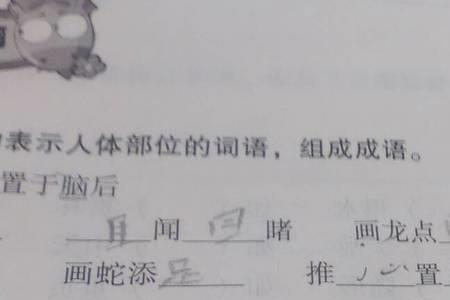 表示人体部位的词语，组成成语。
置于脑后
耳闻目睹 画龙点
画蛇添足 推心置